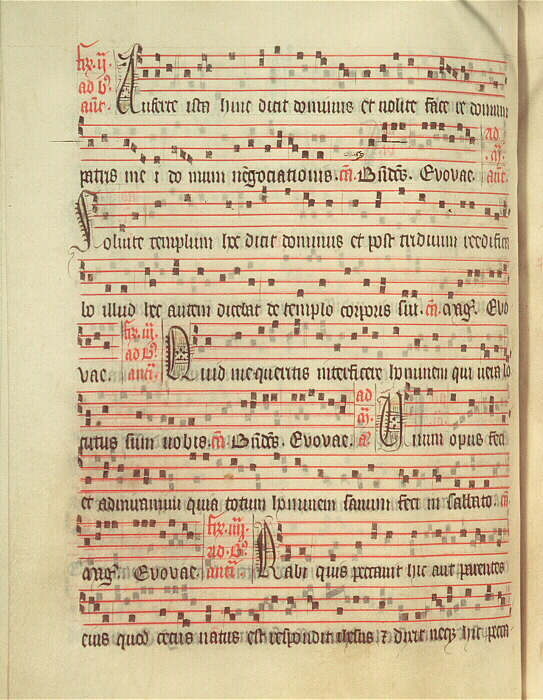 fer. ij. ad b̅s. ant. Auferte ista hinc dicit dominus et nolite face re domum
patris me i do mum negotiationis. c̅a. Bn̅dc̅s. Evovae. ad m̅. ant.
Soluite templum hec dicit dominus et post triduum reedifica
bo illud hec autem dicebat de templo corporis sui. c̅a. m̅ag̅. Evo
vae. fer. iij. ad b̅s. ant. Quid me queritis interficere hominem qui uera lo
cutus sum uobis. c̅a. Bn̅dc̅s. Evovae. ad m̅. a̅. Unum opus feci
et admiramini quia totum hominem sanum feci in sabbato. c̅a.
m̅ag̅. Evovae. fer. iiij. ad b̅s. ant. Rabi quis peccauit hic aut parentes
eius quod cecus natus est respondit ihesus ⁊ dixit neq; hic pecca